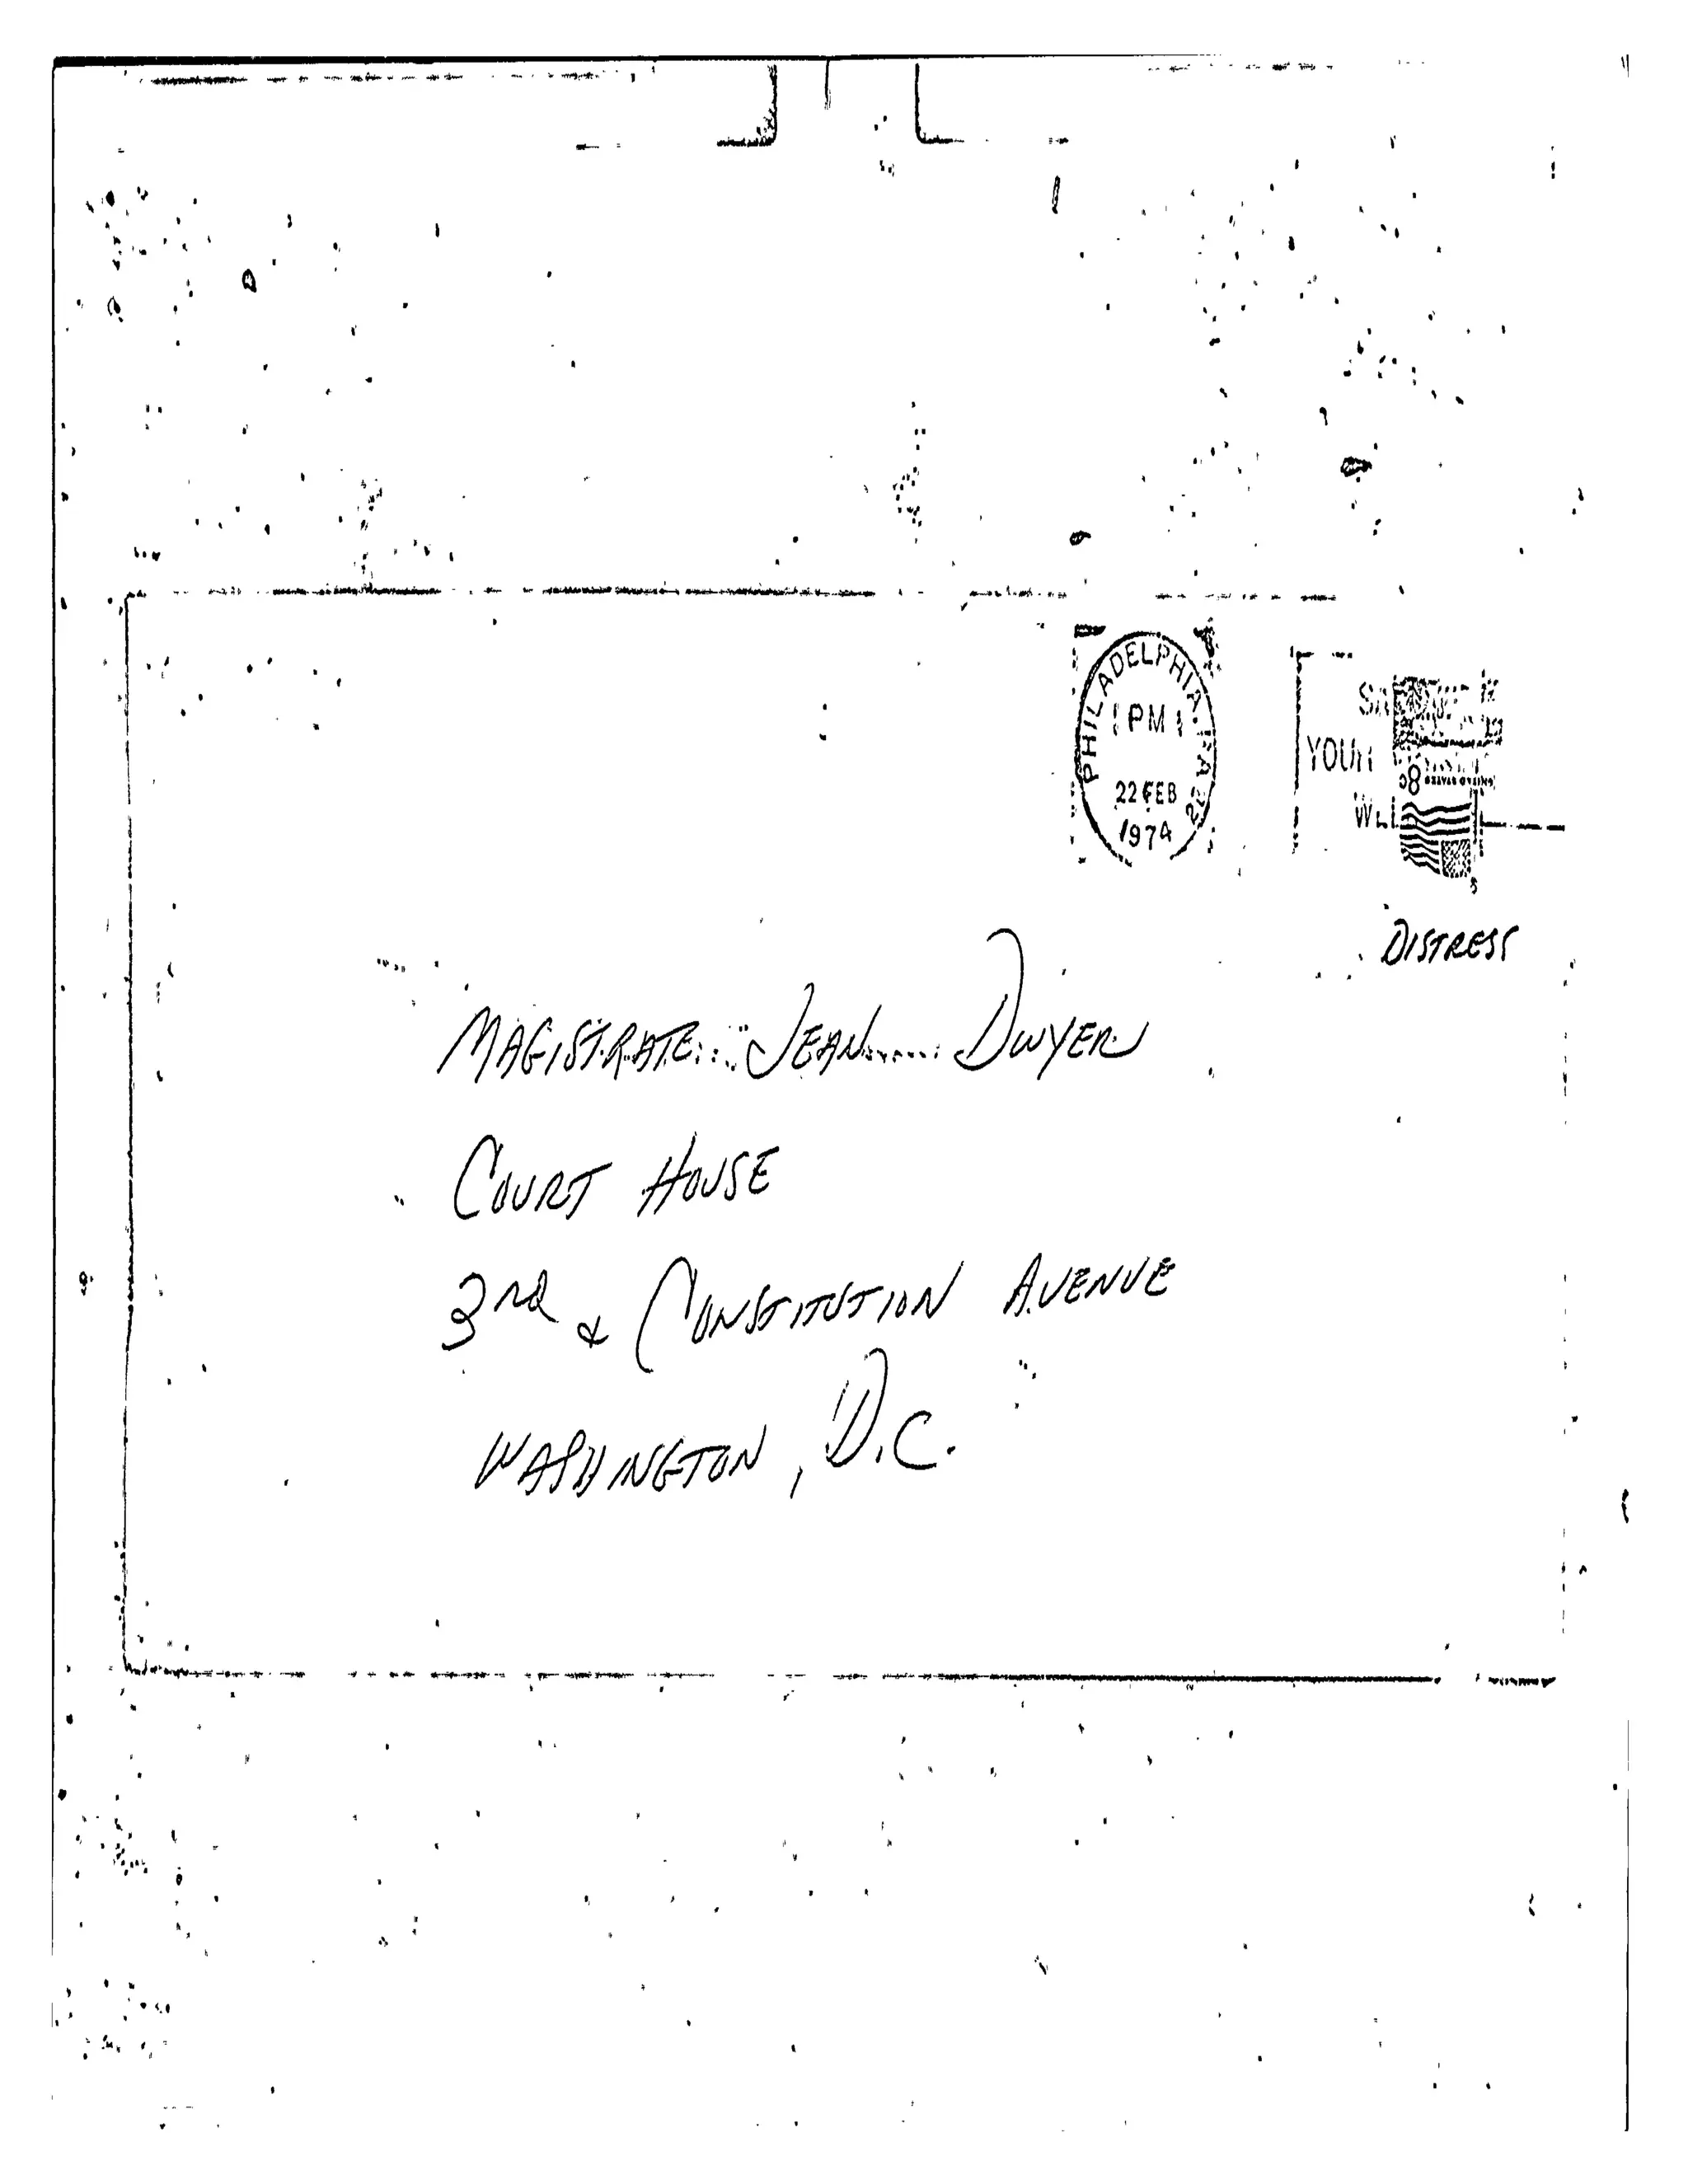 PHILADELPHIA, PA
PM
22 FEB
1974
YOUR
8c
DISTRESS
MAGISTRATE JEAN DWYER
COURT HOUSE
3rd & CONSTITUTION AVENUE
WASHINGTON, D.C.